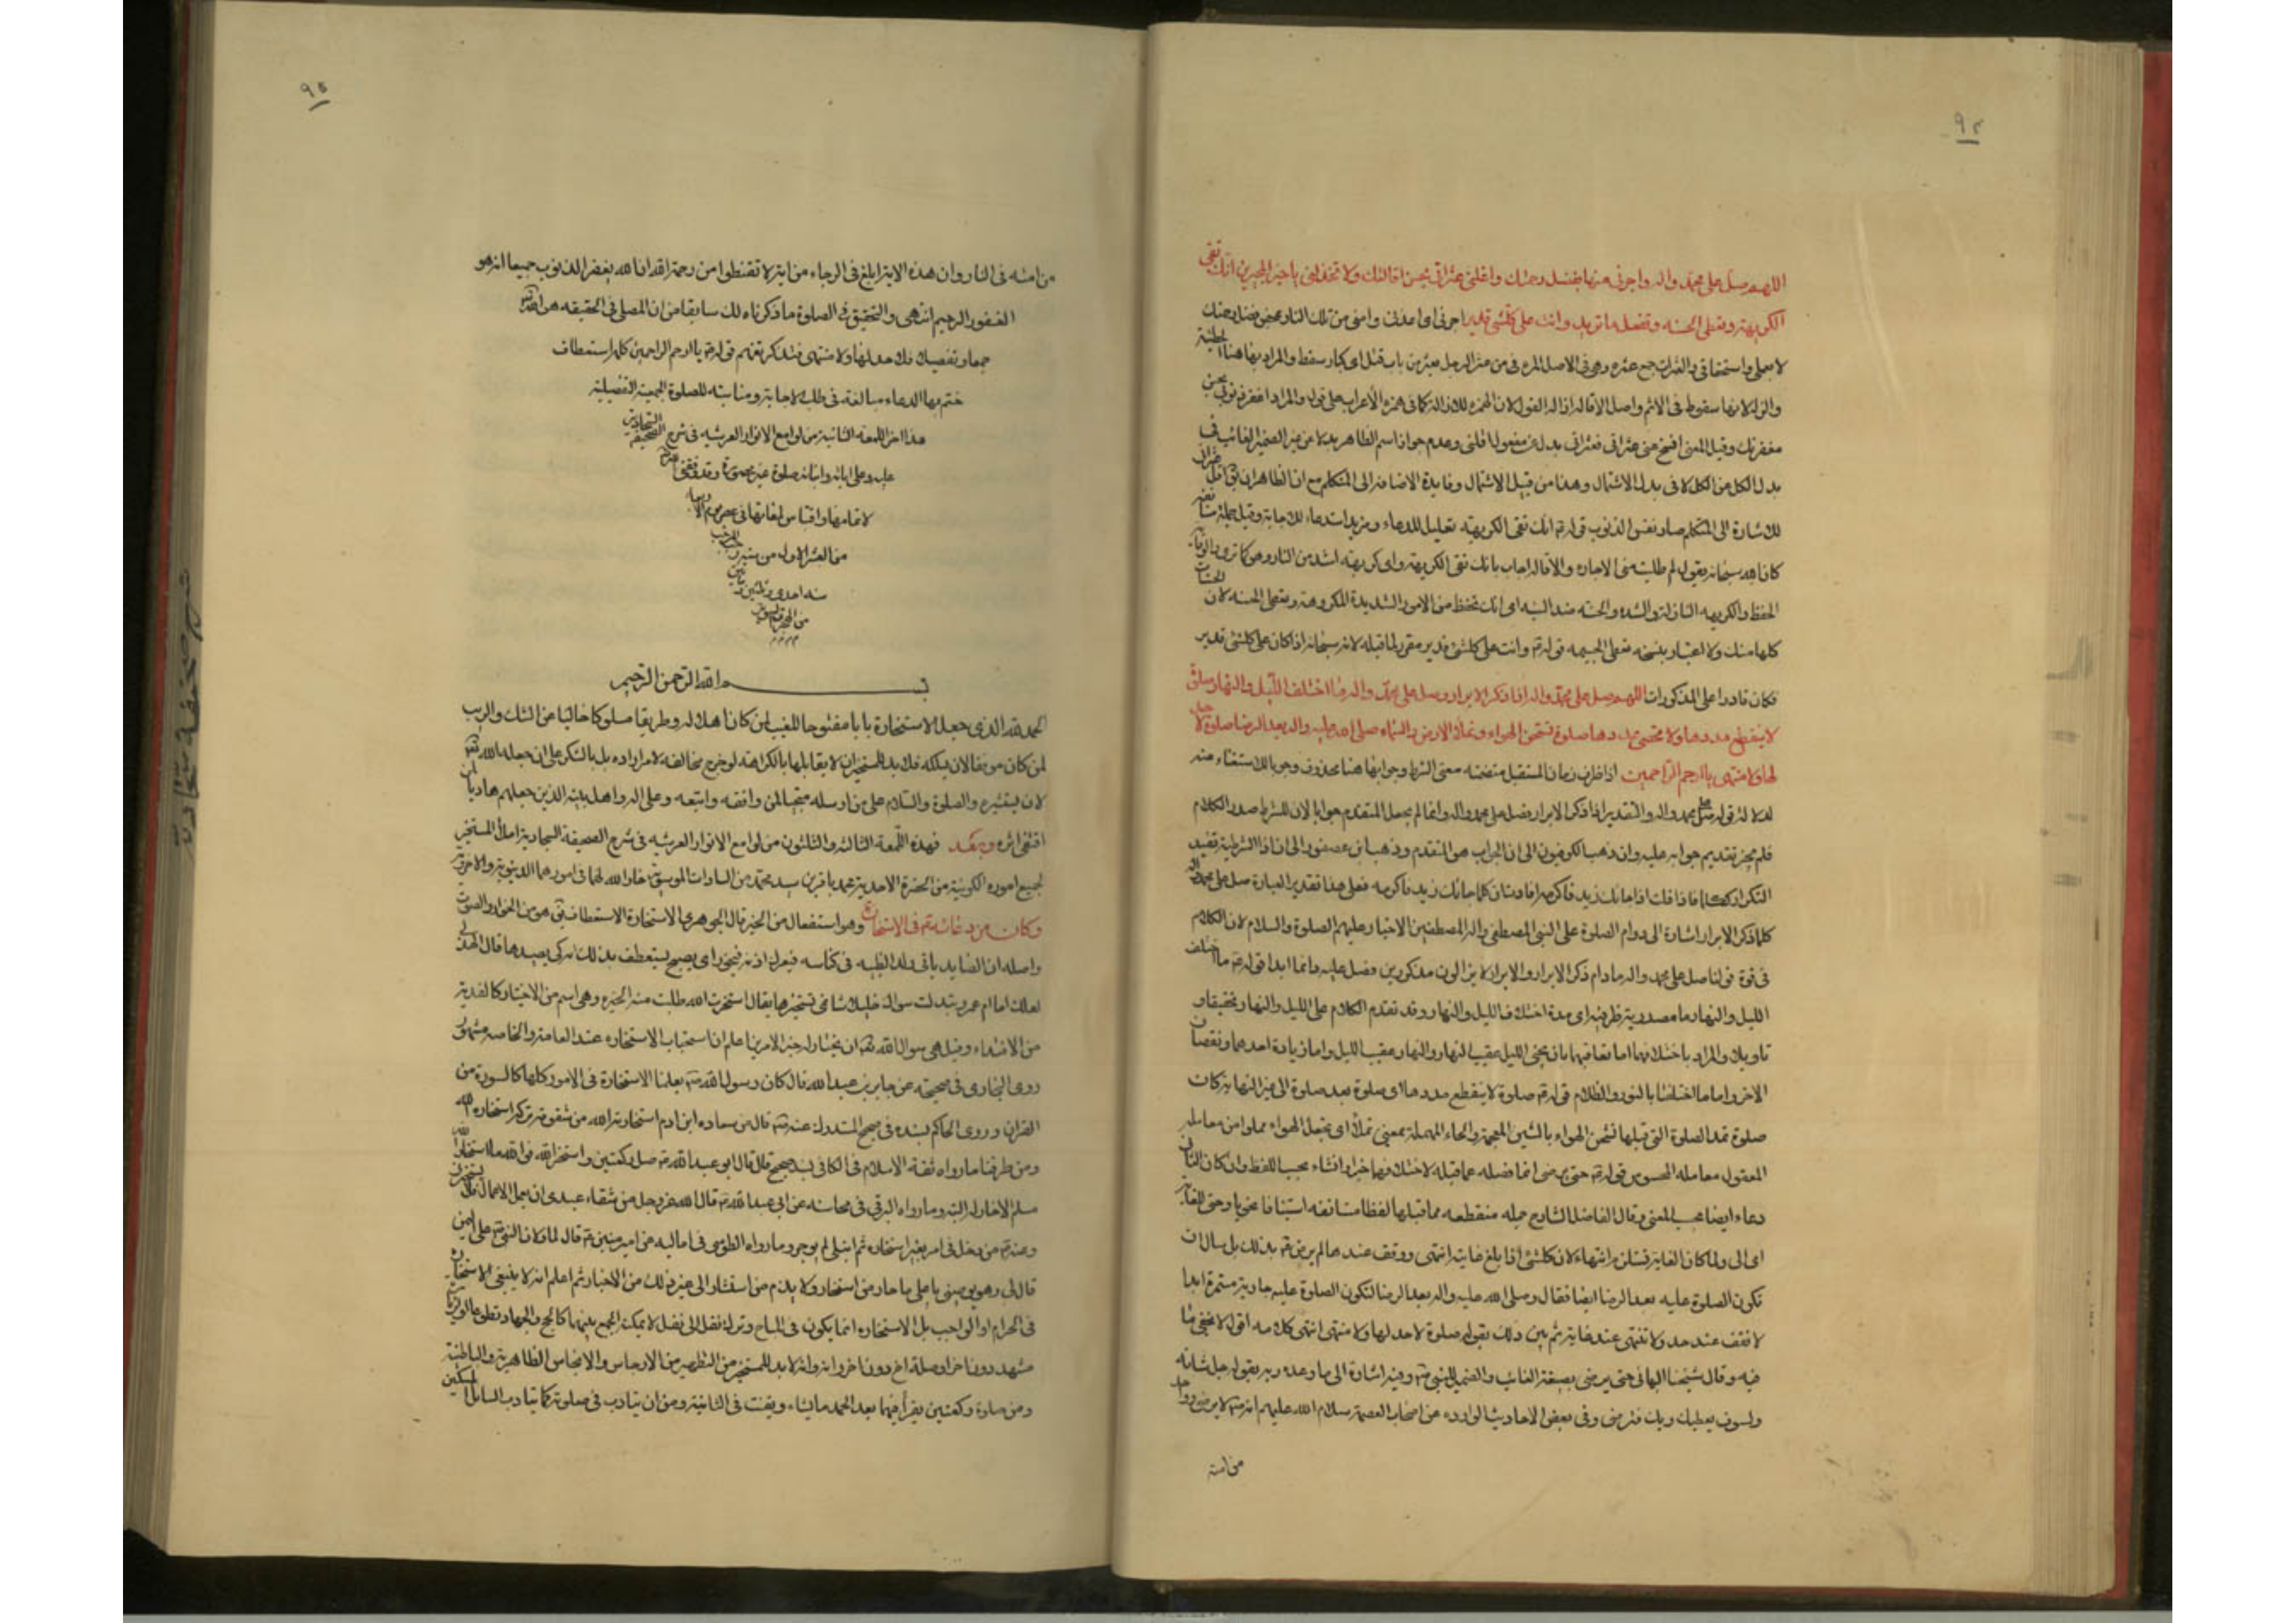 اللهم صل على محمد واله واجرني منها بفضل رحمتك واقلني عثراتي بحسن اقالتك ولا تخذلني يا خير المجيرين انك تقي
الكريهة وتعطي الحسنه وتفعل ما تريد وانت على كلشئ قدير اجرني اى اعذني وامني من تلك النار بمحض فضل رحمتك
لا بعملي واستحقاقي والعثرات جمع عثره وهي في الاصل المره من عثر الرجل يعثر من باب قتل اى كبا وسقط والمراد بها هنا الخطيئة
والزلة لانها سقوط في الاثم واصل الاقالة ازالة القول لان الهمزه للازالة كما في همزه الأعراب على قول والمراد اغفر ذنوبي بحسن
مغفرتك وقيل المعنى اصفح عني عثراتي فعثراتي بدل عن مفعول اقلني وعدم جواز اسم الظاهر بدلا من غير الضمير الغائب في
بدل الكل من الكل لا في بدل الاشتمال وهذا من قبيل الاشتمال وفايدة الاضافه الى المتكلم مع ان الظاهر ان يقول اقل عثراتي
للاشارة الى المتكلم صار نفس الذنوب قوله ع انك تقي الكريهة تعليل للدعاء ومزيد استدعاء للاجابة وقيل جملة مستأنفه
كان الله سبحانه يقول لم طلبت مني الاجاره والاقالة اجاب بانك تقي الكريهة واى كريهة اشد من النار وهو كما ترى والوقاية
الحفظ والكريهه النازلة والشده والحسنه ضد السيئه اى انك تحفظ من الامور الشديدة المكروهة وتعطي الحسنه لان الحسنات
كلها منك ولا اعتبار بنسخه تغطي الجسيمه قوله ع وانت على كلشئ قدير مقرر لما قبله لانه سبحانه اذا كان على كلشئ قدير
فكان قادرا على المذكورات اللهم صل على محمد واله اذا ذكر الابرار وصل على محمد واله ما اختلف الليل والنهار صلوة
لا ينقطع مددها ولا يحصى عددها صلوة تشحن الهواء وتملأ الارض والسماء صلى الله عليه واله بعد الرضا صلوة لا حد
لها ولا منتهى يا ارحم الراحمين اذا ظرف زمان للمستقبل متضمنه معنى الشرط وجوابها هنا محذوف وجوبا للاستغناء عنه
لدلالة قوله صل على محمد واله والتقدير اذا ذكر الابرار فصل على محمد واله وانما لم يجعل المتقدم جوابا لان للشرط صدر الكلام
فلم يجز تقديم جوابه عليه وان ذهب الكوفيون الى ان الجواب هو المتقدم وذهب ابن عصفور الى ان اذا الشرطية تفيد
التكرار ككلما فاذا قلت اذا جائك زيد فاكرمه افادت ان كلما جائك زيد فاكرمه فعلى هذا تقدير العبارة صل على محمد واله
كلما ذكر الابرار اشارة الى دوام الصلوة على النبي المصطفى واله المصطفين الاخيار عليهم الصلوة والسلام لان الكلام
في قوة قولنا صل على محمد واله ما دام ذكر الابرار والابرار لا يزالون مذكورين وفصل عليه دائما ابدا قوله ع ما اختلف
الليل والنهار ما مصدرية ظرفيه اى مدة اختلاف الليل والنهار وقد تقدم الكلام على الليل والنهار تحقيقا و
تاويلا والمراد باختلافهما اما تعاقبهما بان يجئ الليل عقيب النهار والنهار عقيب الليل واما زيادة احدهما ونقصان
الاخر واما ما اختلفا بالنور والظلام قوله ع صلوة لا ينقطع مددها اى صلوة بعد صلوة الى غير النهاية كان
صلوة تمد الصلوة التي قبلها تشحن الهواء بالشين المعجمة والحاء المهملة بمعنى تملأ اى تجعل الهواء مملوا من معامله
المعقول معامله المحسوس قوله ع حتى يرضى انما فصله عما قبله لاختلافهما خبرا وانشاء بحسب اللفظ وان كان الثاني
دعاء ايضا بحسب المعنى وقال الفاضل الشارح جمله منقطعه مما قبلها لفظا مستانفه استينافا نحويا وحتى للغاية
اى الى ولما كان الغاية تستلزم انتهاء لان كلشئ اذا بلغ غايته انتهى ووقف عندها لم يرض ع بذلك بل سال ان
تكون الصلوة عليه بعد الرضا ايضا فقال وصلى الله عليه واله بعد الرضا لتكون الصلوة عليه جارية مستمرة ابدا
لا تقف عند حد ولا تنتهى عند غاية ثم بين ذلك بقوله صلوة لا حد لها ولا منتهى انتهى كلامه اقول لا يخفى ما
فيه وقال شيخنا البهائي حتى يرضى بصيغة الغائب والضمير للنبي ص وفيه اشارة الى ما وعده ربه بقوله جل شانه
ولسوف يعطيك ربك فترضى وفي بعض الاحاديث الوارده عن اصحاب العصمة سلام الله عليهم انه ص لا يرضى وواحد
من امته
من امته في النار وان هذه الاية ابلغ في الرجاء من اية لا تقنطوا من رحمة الله ان الله يغفر الذنوب جميعا انه هو
الغفور الرحيم انتهى والتحقيق في الصلوة ما ذكرناه لك سابقا من ان المصلي في الحقيقه هو الله
جمعا وتفصيلا فلا حد لها ولا منتهى فتذكر تفهم قوله ع يا ارحم الراحمين كلمة استعطاف
ختم بها الدعاء مبالغة في طلب الاجابة ومناسبته للصلوة الجمعية التفضيلية
هذا اخر اللمعة الثانية من لوامع الانوار العرشيه في شرح الصحيفة السجادية
عليه وعلى ابائه وابنائه صلوة غير محصورة وقد وفقني الله
لاتمامها واقتباس لمعاتها في عصر يوم الاربعاء
من العشر الاول من شهر رجب المرجب
سنه احدى وثلثين ومأتين
من الهجرة النبوية
بسم الله الرحمن الرحيم
الحمد لله الذي جعل الاستخارة بابا مفتوحا للغيب لمن كان اهلا له وطريقا مسلوكا خاليا عن الشك والريب
لمن كان موفقا لان يسلكه فلا بد للمستخير ان لا يقابلها بالكراهة لو خرج مخالفة لامر اراده بل بالشكر على ان جعله الله تعالى
لان يستشيره والصلوة والسلام على من ارسله منجيا لمن وافقه واتبعه وعلى اله واهل بيته الذين جعلهم هاديا لمن
اقتفى اثره وبعد فهذه اللمعة الثالثة والثلثون من لوامع الانوار العرشيه في شرح الصحيفة السجادية املاء المستخير
لجميع اموره الكونية من الحضرة الاحدية محمد باقر بن سيد محمد من السادات الموسوية خار الله لهما في امورهما الدنيوية والاخروية
وكان من دعائه ع في الاستخارة وهو استفعال من الخير قال الجوهري الاستخارة الاستعطاف يق هو من الخوار والصوت
واصله ان الصايد ياتي ولد الظبيه في كناسه فيعرك اذنه فيخور اى يصيح يستعطف بذلك امه كى يصيدها قال الهذلي
لعلك اما ام عمرو تبدلت سواك خليلا شاتمي تستخيرها يقال استخرت الله طلبت منه الخيره وهي اسم من الاختيار كالفدية
من الافتداء وقيل هي سوال الله تعالى ان يختار له خير الامرين اعلم ان استحباب الاستخاره عند العامة والخاصه مشهور
روى البخاري في صحيحه عن جابر بن عبد الله قال كان رسول الله ص يعلمنا الاستخارة في الامور كلها كالسورة من
القران وروى الحاكم بسنده في صحيح المستدرك عنه ص قال من سعاده ابن ادم استخارته الله من شقوته تركه استخاره الله
ومن طرقنا ما رواه ثقة الاسلام في الكافي بسند صحيح قال قال ابو عبد الله ع صل ركعتين واستخر الله فوالله ما استخار الله
مسلم الا خار له البتة وما رواه البرقي في محاسنه عن ابي عبد الله ع قال الله عز وجل من شقاء عبدي ان يعمل الاعمال ولا يستخيرني
وعنه ع من دخل في امر بغير استخاره ثم ابتلي لم يوجر وما رواه الطوسي في اماليه عن امير المؤمنين ع قال لما ولاني النبي ص على اليمن
قال لي وهو يوصيني يا علي ما حار من استخار ولا يندم من استشار الى غير ذلك من الاخبار ثم اعلم انه لا ينبغي الاستخارة
في الحرام او الواجب بل الاستخاره انما يكون في المباح وترك نفل الى نفل لا يمكن الجمع بينهما كالحج والجهاد تطوعا او لزيارة
مشهد دون اخر او صلة اخ دون اخر وانه لا بد للمستخير من التطهير من الارجاس والانجاس الظاهرية والباطنية
ومن صلوة ركعتين يقرأ فيهما بعد الحمد ما يشاء ويقنت في الثانية ومن ان يتادب في صلوته كما يتادب السائل المسكين